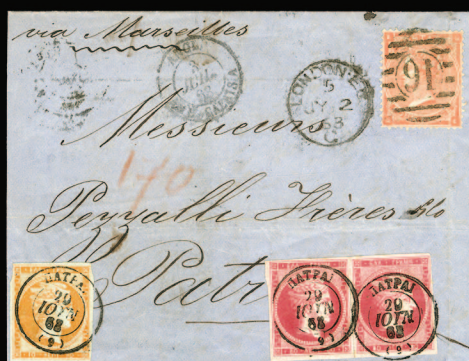 via Marseilles
JUIL
LONDON-E.C
5
JY 2
63
C
91
Messieurs
170
Pezzalli Frères
Patr
ΠΑΤΡΑΙ
29
ΙΟΥΝ
63
(9)
ΠΑΤΡΑΙ
29
ΙΟΥΝ
63
9)
ΠΑΤΡΑΙ
29
ΙΟΥΝ
63
(9)